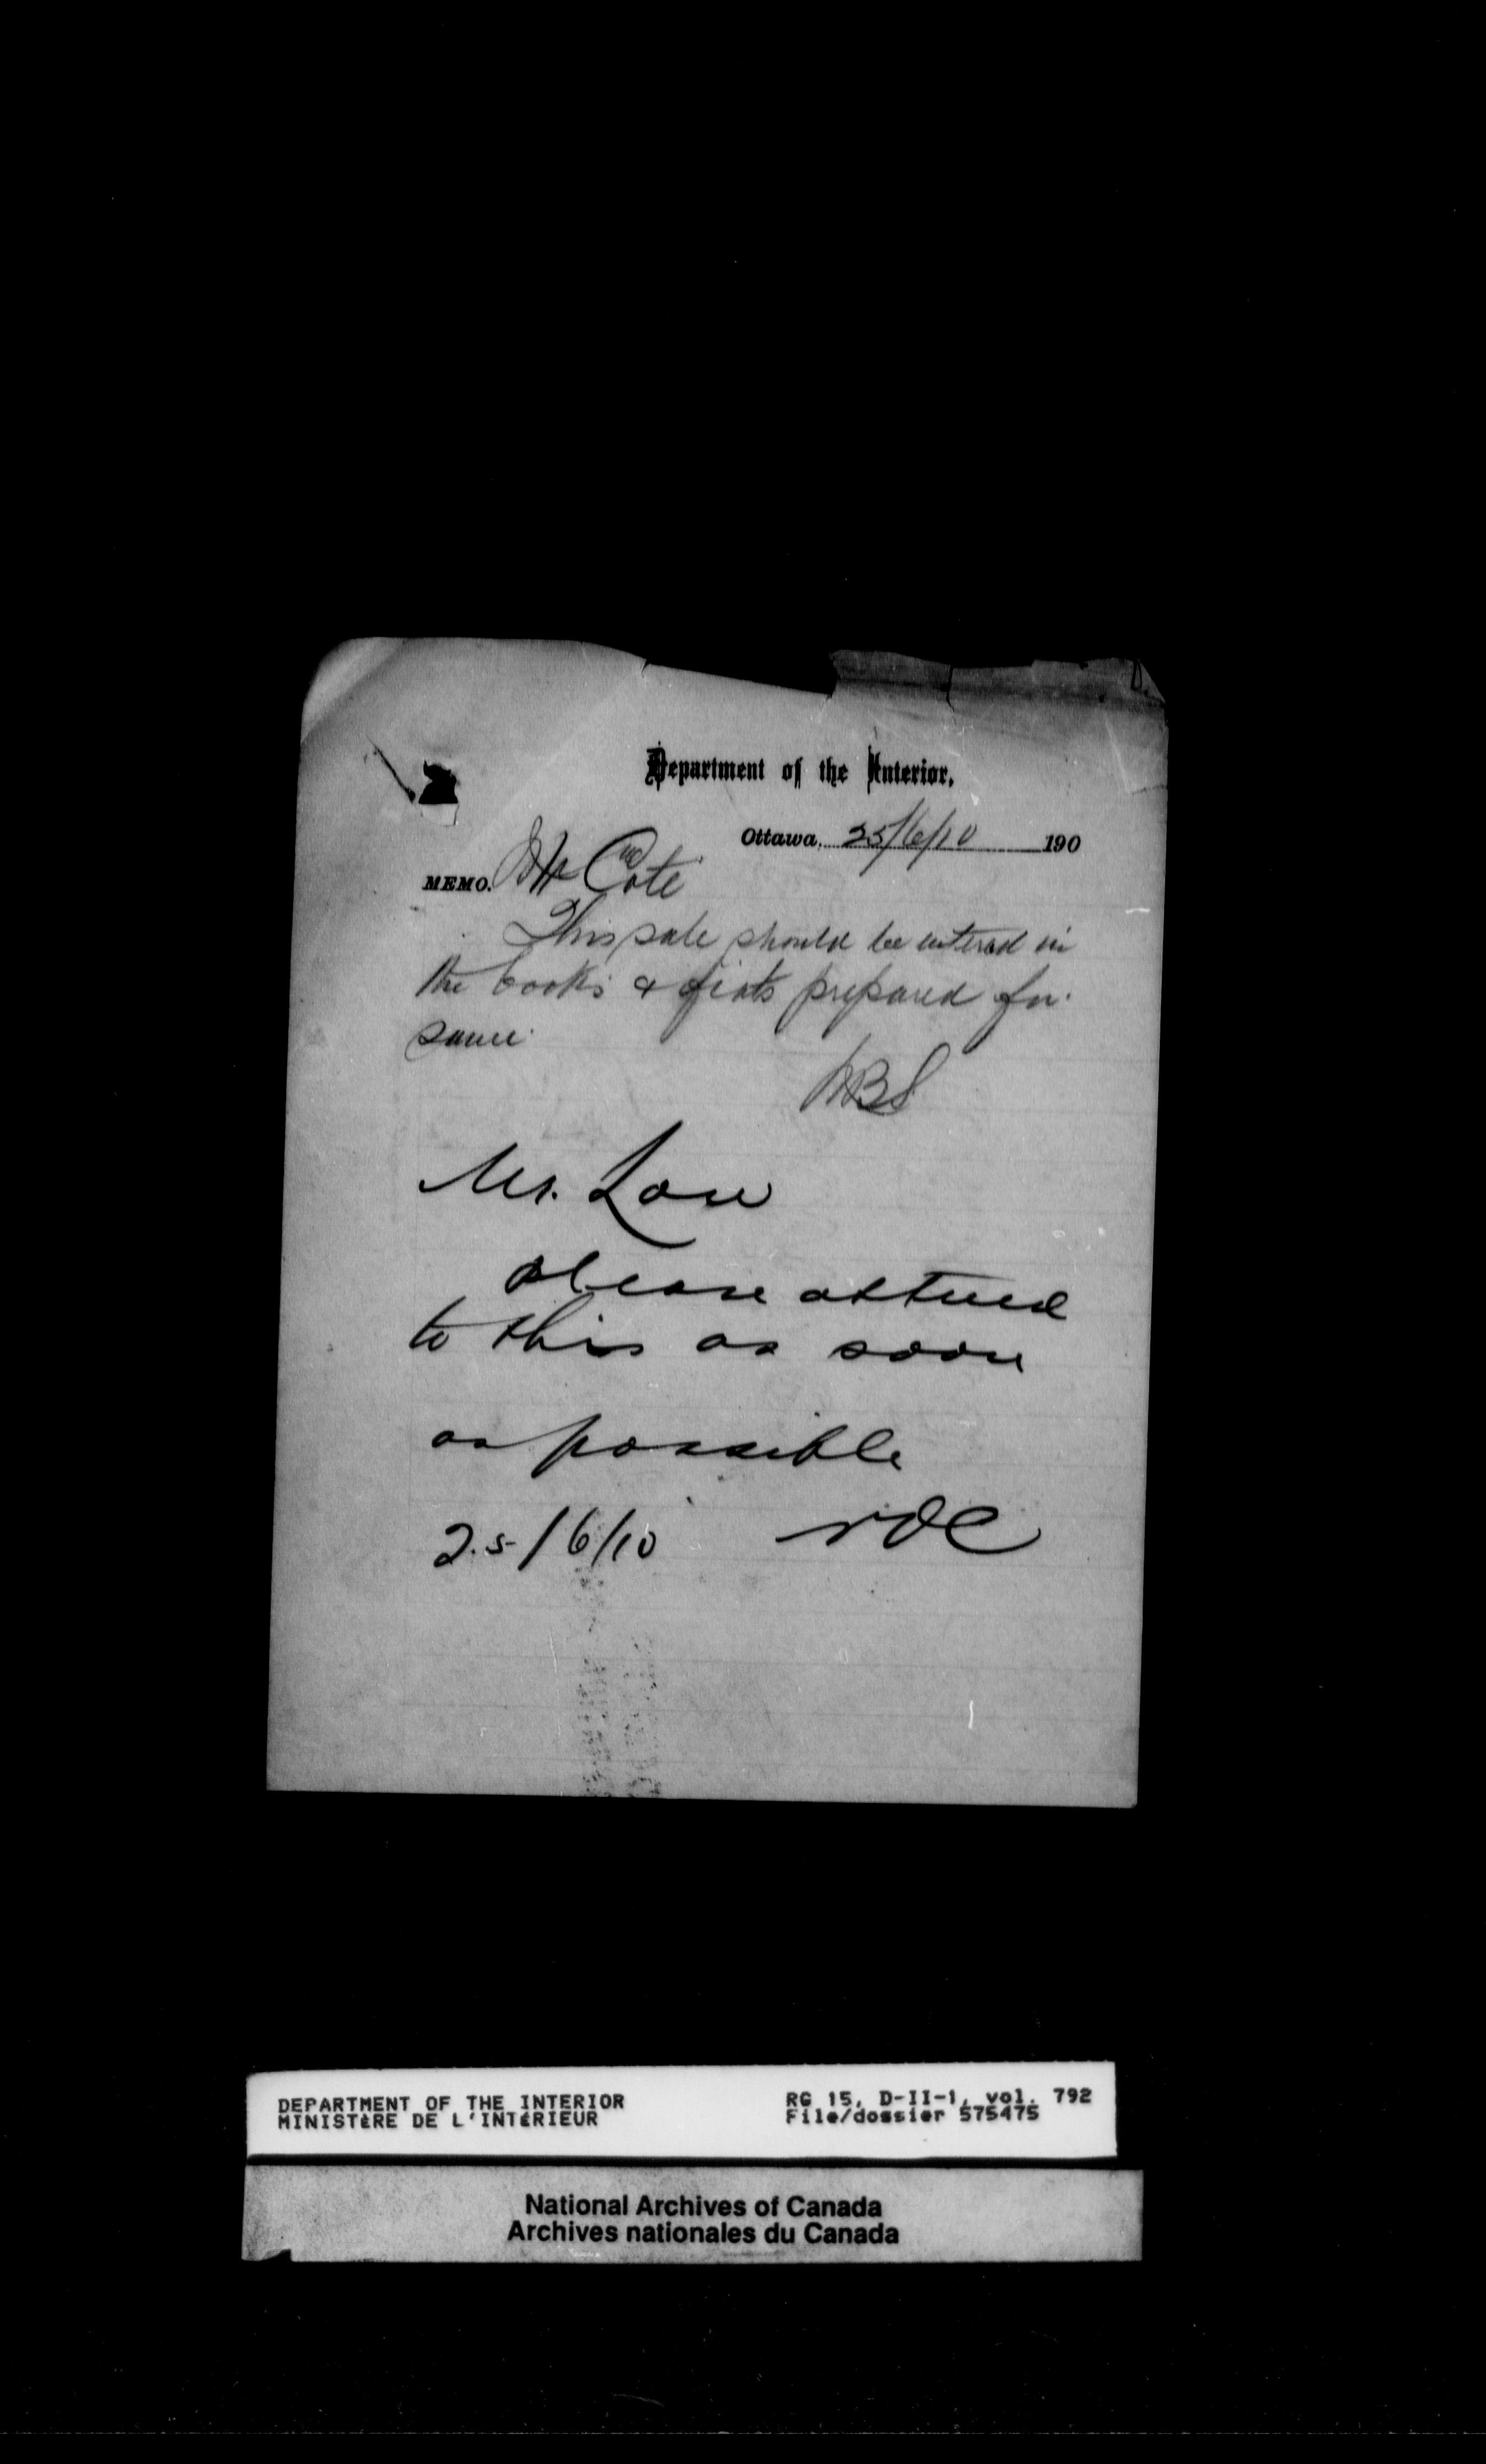 D.
Department of the Interior.
Ottawa, 25/6/10 190
MEMO. Mr Coté
This sale should be entered in
the books & fiats prepared for
same
Mr. Low
please attend
to this as soon
as possible
25/6/10 NOC
DEPARTMENT OF THE INTERIOR
MINISTÈRE DE L'INTÉRIEUR
RG 15, D-II-1, vol. 792
File/dossier 575475
National Archives of Canada
Archives nationales du Canada